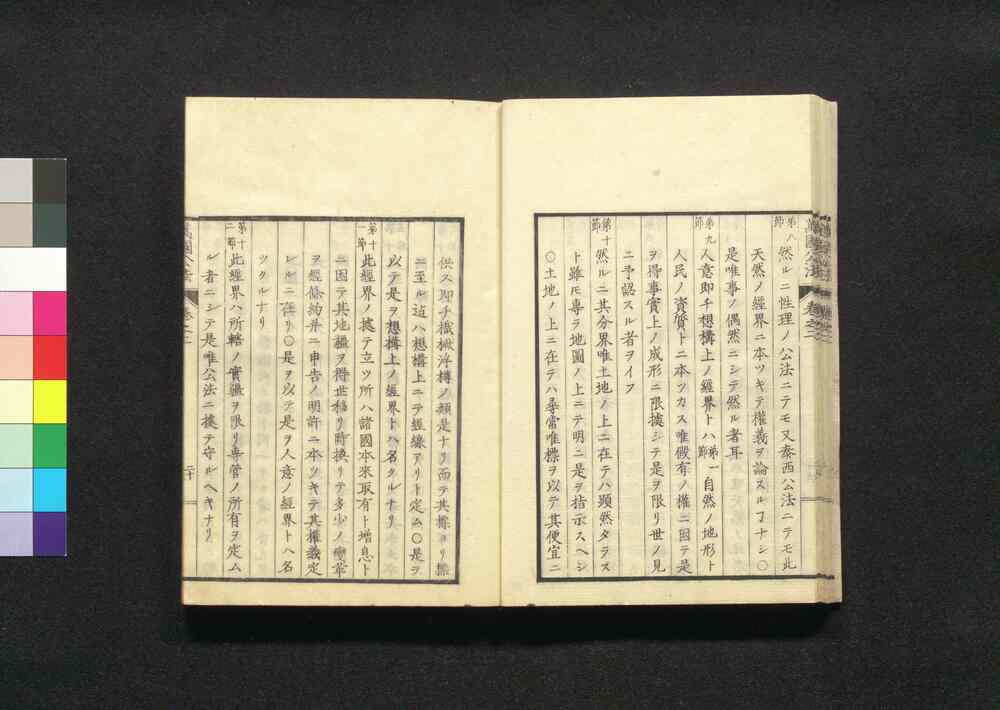 第八節 然ルニ性理ノ公法ニテモ又泰西公法ニテモ此
天然ノ經界ニ本ツキテ權義ヲ論スルヿナシ○
是唯事ノ偶然ニシテ然ル者耳
第九節 人意即チ想構上ノ經界トハ第一節自然ノ地形ト
人民ノ資質トニ本ツカス唯假有ノ權ニ因テ是
ヲ得事實上ノ成形ニ限據シテ是ヲ限リ世ノ見
ニ予認スル者ヲイフ
第十節 然ルニ其分界唯土地ノ上ニ在テハ顯然タラス
ト雖モ專ラ地圖ノ上ニテ明ニ是ヲ指示スヘシ
○土地ノ上ニ在テハ尋常唯標ヲ以テ其便宜ニ
供ス即チ
浮樽ノ類是ナリ而テ其標ヨリ標
ニ至ル迠ハ想構上ニテ經線アリト定ム○是ヲ
以テ是ヲ想構上ノ經界トハ名クルナリ
第十一節 此經界ノ據テ立ツ所ハ諸國本來取有ト增息ト
ニ因テ其地疆ヲ得世移リ時換リテ多少ノ變革
ヲ經條約并ニ申告ノ明許ニ本ツキテ其權裁定
レルニ在リ○是ヲ以テ是ヲ人意ノ經界トハ名
ツクルナリ
第十二節 此經界ハ所轄ノ實疆ヲ限リ專管ノ所有ヲ定ム
ル者ニシテ是唯公法ニ據テ守ルヘキナリ
卷之二
二十